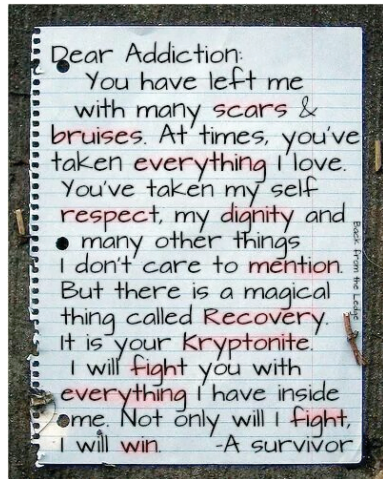 Dear Addiction:
You have left me
with many scars &
bruises. At times, you've
taken everything I love.
You've taken my self
respect, my dignity and
many other things
I don't care to mention.
But there is a magical
thing called Recovery.
It is your Kryptonite.
I will fight you with
everything I have inside
me. Not only will I fight,
I will win. -A survivor
Back from the Ledge